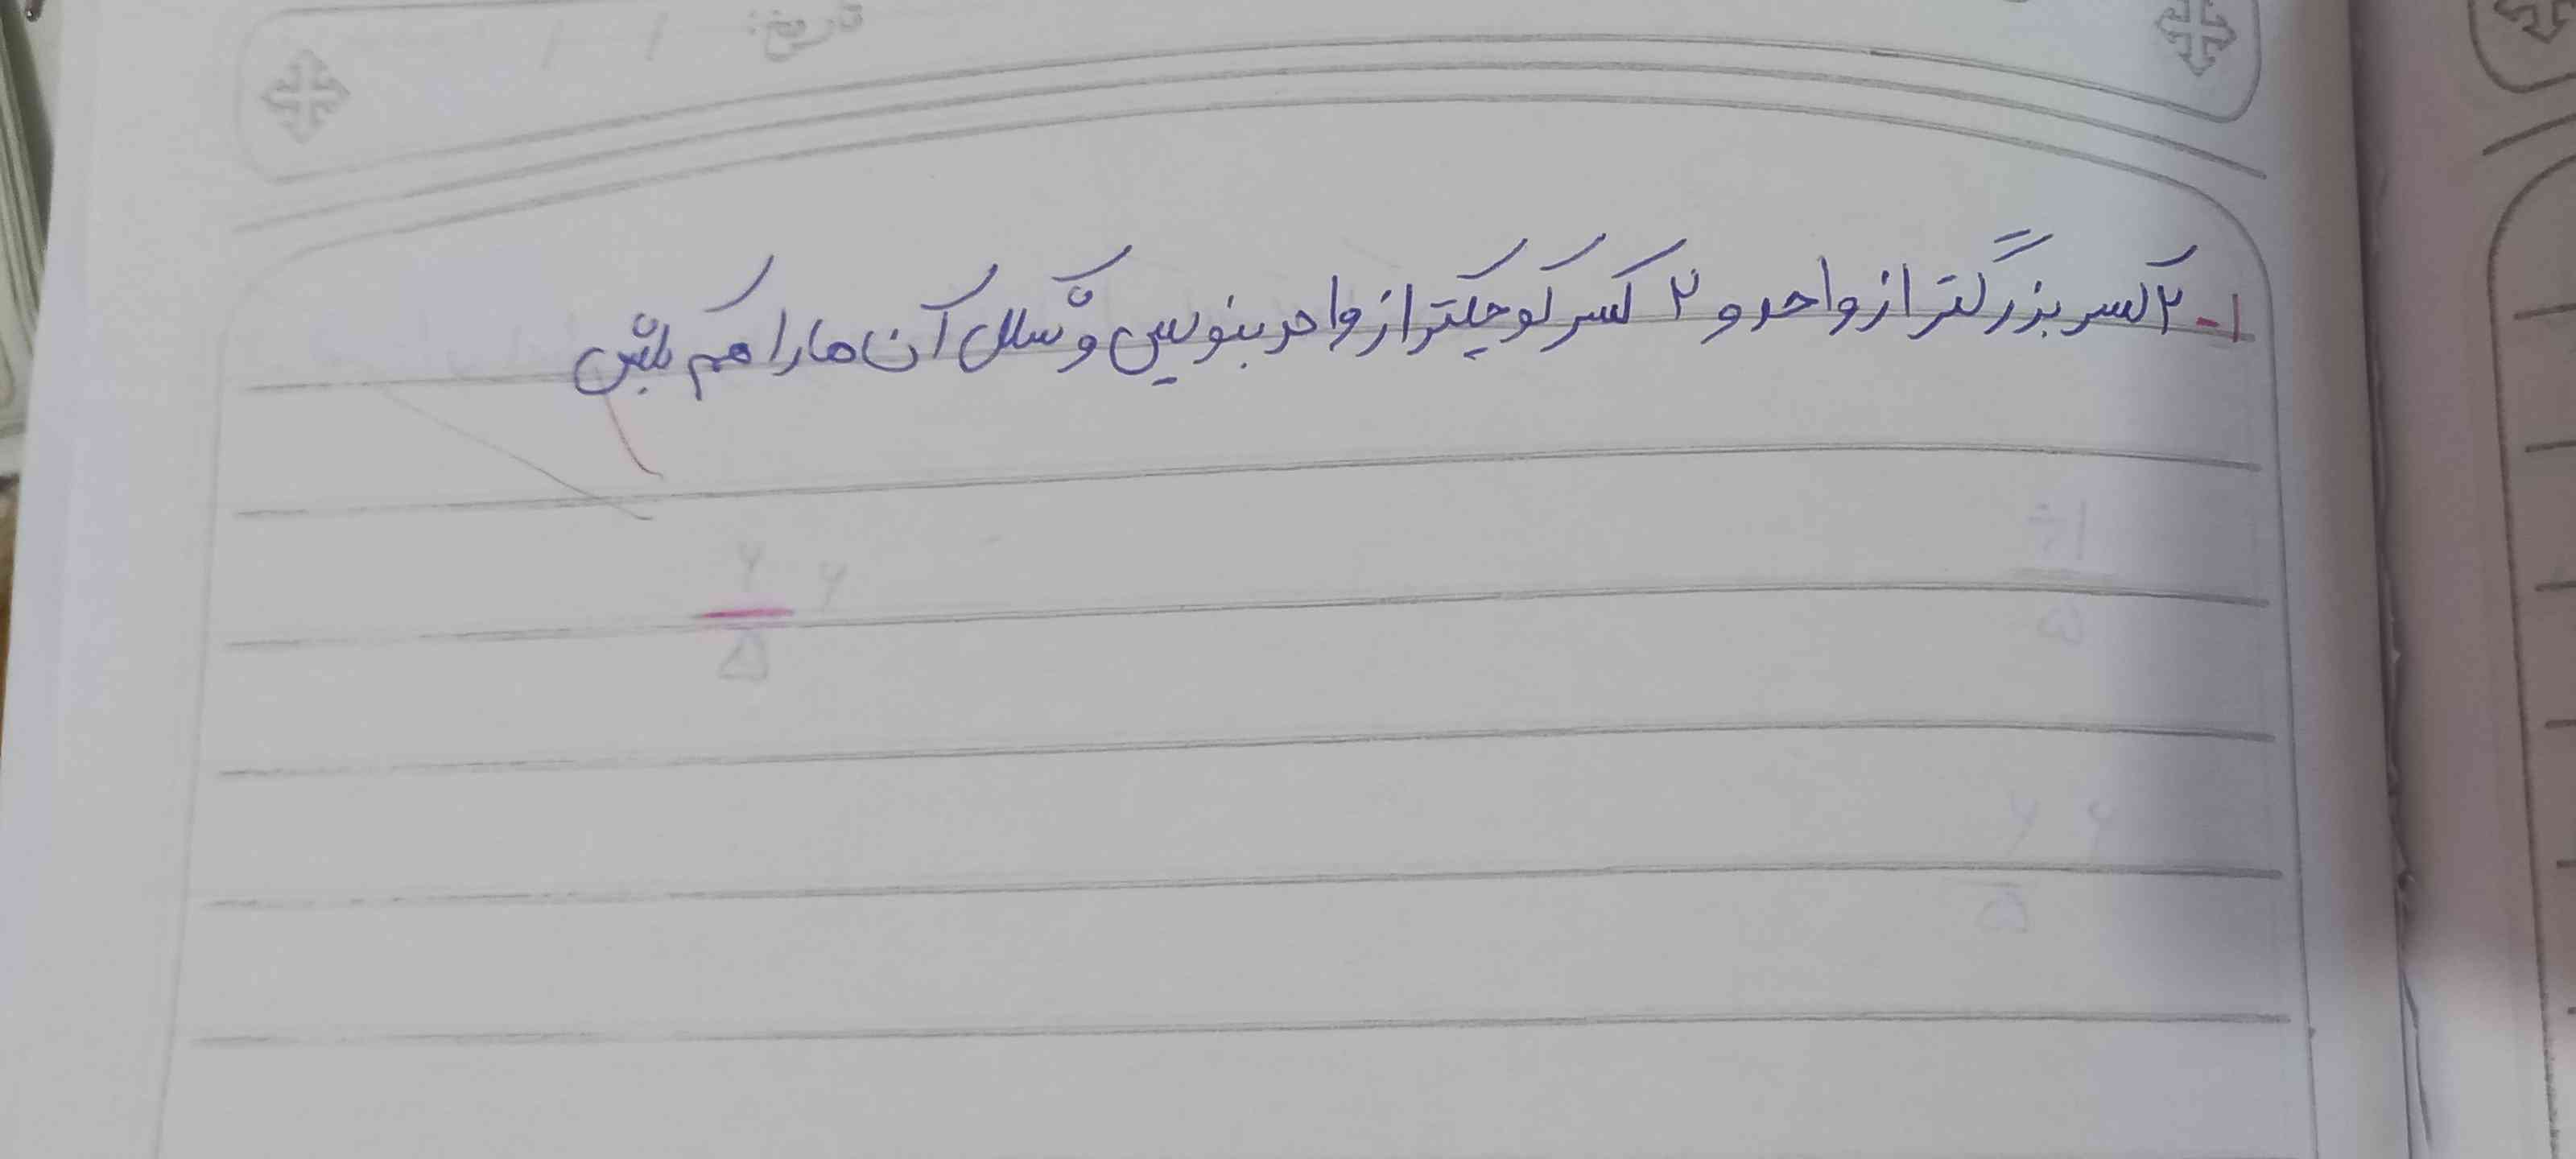 تاریخ: / /
۱- ۲ کسر بزرگتر از واحد و ۲ کسر کوچکتر از واحد بنویس و شکل آن ها را هم بکش
۶ ۶
۵